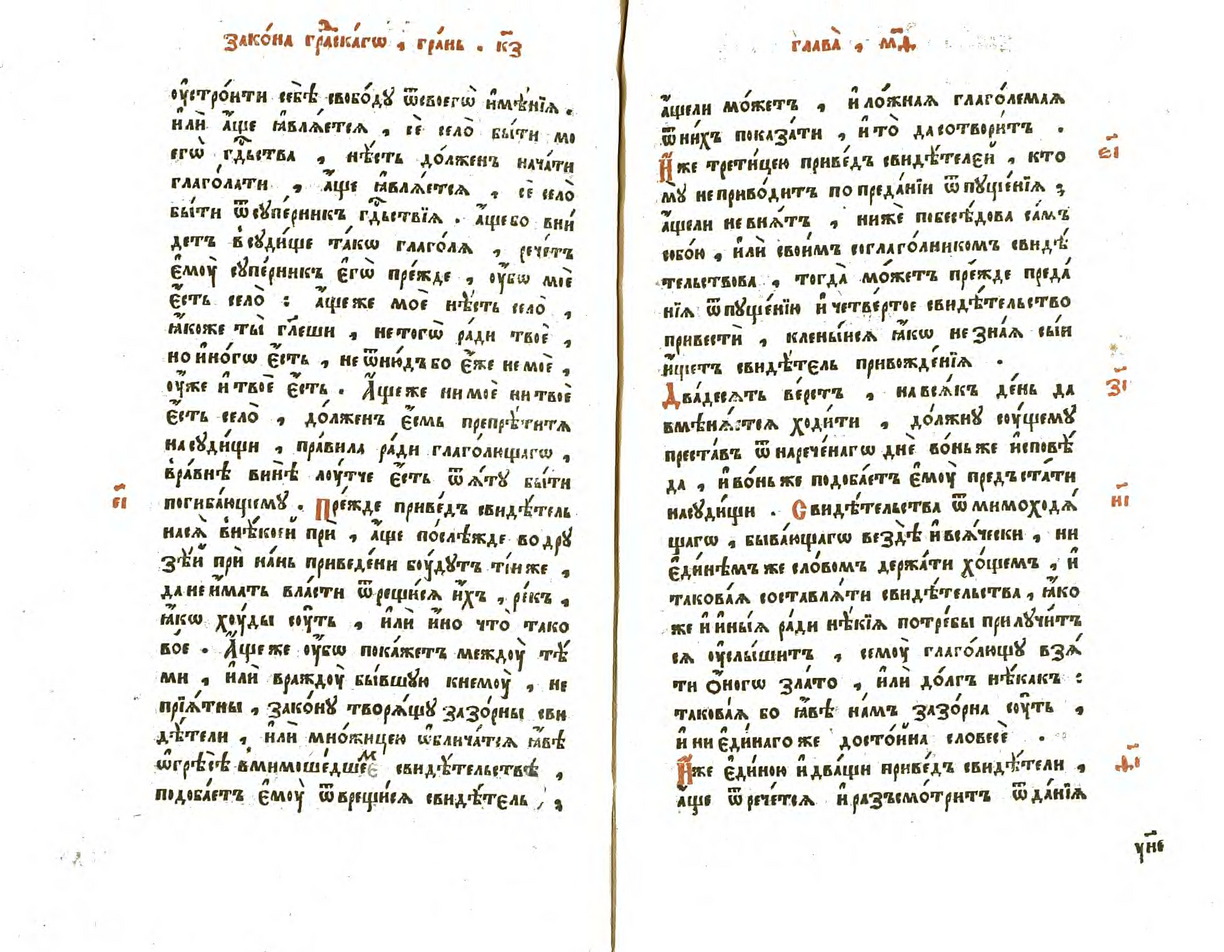 зако́на гра́дскагѡ , гра́нь . к҃з
оу҆стро́ити себѣ̀ свобо́ду ѿсвоегѡ̀ и҆мѣ́нїѧ .
и҆лѝ а҆́ще ꙗ҆влѧ́етсѧ , сѐ село̀ бы́ти мо
егѡ̀ гдⷭ҇ьства , нѣ́сть до́лженъ нача́ти
глаго́лати , а҆́ще ꙗ҆влѧ́етсѧ , сѐ село̀
бы́ти ѿсупе́рникъ гдⷭ҇ьствїѧ . а҆́щебо вни́
детъ всуди́ще та́кѡ глаго́лѧ , рече́тъ
є҆моу̀ супе́рникъ є҆гѡ̀ пре́жде , оу҆́бѡ моѐ
є҆́сть село̀ : а҆́щеже моѐ нѣ́сть село̀ ,
ꙗ҆́коже ты̀ гл҃еши , нетогѡ̀ ра́ди твоѐ ,
но и҆но́гѡ є҆́сть , не ѿню́дъ бо є҆́же не моѐ ,
оу҆́же и҆ твоѐ є҆́сть . А҆́щеже ни моѐ ни твоѐ
є҆́сть село̀ , до́лженъ є҆́смь препрѣ́титѧ
на суди́щи , пра́вила ра́ди глаго́лющагѡ ,
вра́внѣ винѣ̀ лоу́тче є҆́сть ѿѧ́ту бы́ти
погиба́ющему . Пре́жде приве́дъ свидѣ́тель
насѧ̀ внѣ́коей прѝ , а҆́ще послѣ́жде во дру
зѣ́й прѝ на́нь приведе́ни боу́дутъ ті́иже ,
да не и҆́мать власти ѿрещи́сѧ и҆́хъ , ре́къ ,
ꙗ҆́кѡ хоу́ды соу́ть , и҆лѝ и҆́но что̀ тако
во́е . А҆́щеже оу҆́бѡ пока́жетъ междоу̀ тѣ́
ми , и҆лѝ враждоу̀ бы́вшую к немоу̀ , не
прїѧ́тны , зако́ну творѧ́щу зазо́рны сви
дѣ́тели , и҆лѝ мно́жицею ѡ҆блича́тсѧ ꙗ҆́вѣ
ѡ҆грѣ́сѣ вмимоше́дшемъ свидѣ́тельствѣ ,
подоба́етъ є҆моу̀ ѿврещи́сѧ свидѣ́тель ,
є҃і
глава̀ , м҃д
а҆́щели мо́жетъ , и҆ ло́жнаѧ глаго́лемаѧ
ѿни́хъ показа́ти , и҆ то̀ да сотвори́тъ .
И҆́же трети́цею приве́дъ свидѣ́телей , кто
мꙋ̀ не приво́дитъ по преда́нїи ѿпуще́нїѧ ;
а҆́щели не внѧ́тъ , нижѐ побесѣ́дова са́мъ
собо́ю , и҆лѝ свои́мъ соглаго́лникомъ свидѣ́
тельствова , тогда̀ мо́жетъ пре́жде преда́
нїѧ ѿпуще́нїю и҆ четве́ртое свидѣ́тельство
привестѝ , клены́йсѧ ꙗ҆́кѡ не зна́ѧ сы́й
и҆́щетъ свидѣ́тель привожде́нїѧ .
Два́десѧть ве́рстъ , на всѧ́къ де́нь да
вмѣнѧ́етсѧ ходи́ти , до́лжну соу́щему
преста́въ ѿ нарече́нагѡ днѐ во́ньже и҆сповѣ́
да , и҆ во́ньже подоба́етъ є҆моу̀ предъста́ти
насуди́щи . Свидѣ́тельства ѿмимоходѧ́
щагѡ , быва́ющагѡ вездѣ̀ и҆ всѧ́чески , ни
є҆ди́нѣмъже сло́вомъ держа́ти хо́щемъ , и҆
такова́ѧ составлѧ́ти свидѣ́тельства , ꙗ҆́ко
же и҆ и҆ны́ѧ ра́ди нѣ́кїѧ потре́бы прилучи́т
сѧ оу҆слы́шитъ , семоу̀ глаго́лющу взѧ́
ти о҆́ногѡ зла́то , и҆лѝ до́лгъ нѣ́какъ :
такова́ѧ бо ꙗ҆́вѣ на́мъ зазо́рна соу́ть ,
и҆ ни є҆ди́наго же досто́йна словесѐ .
И҆́же є҆ди́ною и҆ два́щи приве́дъ свидѣ́тели ,
а҆́ще ѿрече́тсѧ и҆ разъсмо́тритъ ѿда́нїѧ
є҃і
з҃і
и҃і
ѳ҃і
уне҃